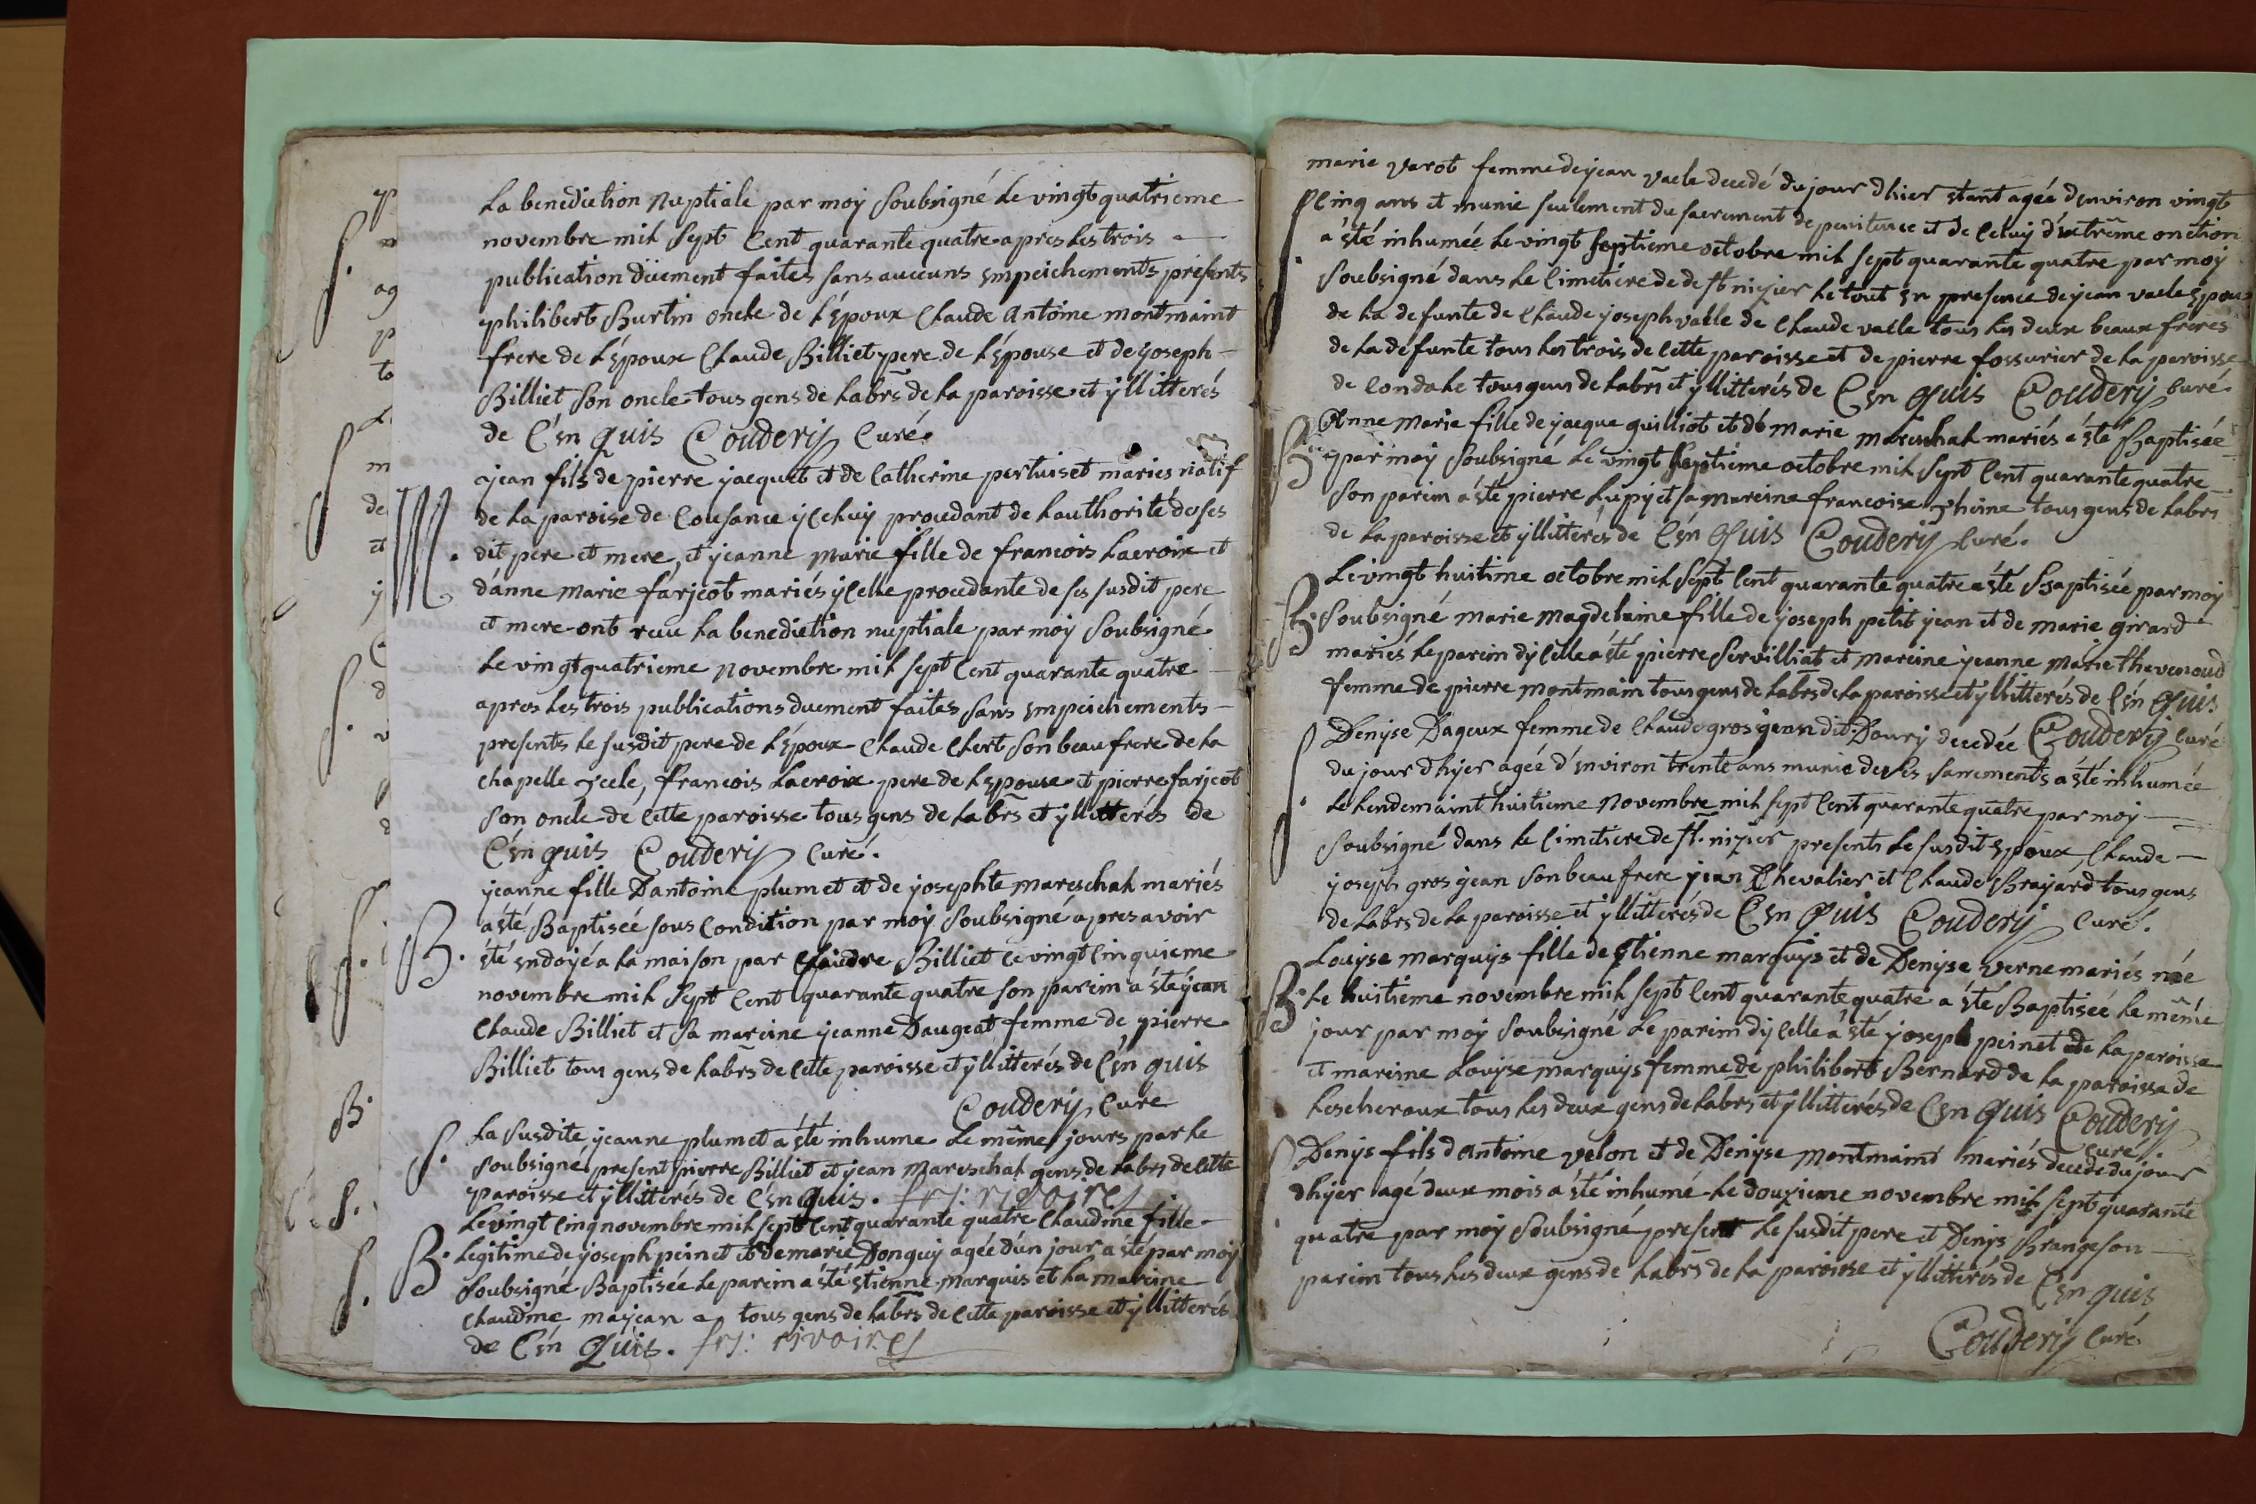 La benediction Nuptiale par moy Soubsigné Le vingt quatrieme
novembre mil Sept Cent quarante quatre apres Les trois
publication düement faites sans aucuns Empeichements présents
philibert Burtin oncle de L'Époux Claude Antoine montmaint
frere de L'Époux Claude Billiet pere de L'Épouse et de joseph
Billiet Son oncle tous gens de Labrs de La paroisse et yllitterés
de C'en Quis Couderij Curé.
M. jean fils de pierre jacquet et de Catherine pertuiset mariés natif
de La paroise de Cousance yceluy procedant de Lauthorité de ses
dit pere et mere, et jeanne Marie fille de francois Lacroix et
d'anne Marie farjeot mariés ycelle procedante de ses susdit pere
et mere ont reçu La benediction nuptiale par moy Soubsigné
Le vingt quatrieme Novembre mil sept Cent quarante quatre
apres Les trois publications duement faites sans Empeichements
presents Le susdit pere de L'Époux Claude Clert Son beau frere de La
chapelle , francois Lacroix pere de L'Epouse et pierre farjeot
Son oncle de Cette paroisse tous gens de Labrs et yllitterés de
C'en quis Couderij Curé.
jeanne fille D'antoine plumet et de josephte mareschal mariés
B. a été Baptisée sous Condition par moy Soubsigné apres avoir
été Endoyé a La maison par Billiet Ce vingt Cinquieme
novembre mil Sept Cent quarante quatre son parein a été jean
Claude Billiet et Sa mareine jeanne Daugeat femme de pierre
Billiet tous gens de Labrs de Cette paroisse et yllitterés de C'en quis
Couderij Cure
S. La susdite jeanne plumet a été inhume Le même jours par Le
soubsigné present pierre Billiet et jean Mareschal gens de Labrs de Cette
paroisse et yllitterés de C'en quis. frs: rivoires
Le vingt Cinq novembre mil Sept Cent quarante quatre Claudine fille
B. Legitime de joseph peinet et de marie Donguy agée d'un jour a été par moy
Soubsigné Baptisée Le parein a été étienne marquis et La mareine
Claudine majean tous gens de Labrs de Cette paroisse et yllitterés
de C'en Quis. frs: rivoires
marie varot femme de jean vacle decedé du jour d'hier étant agée d'environ vingt
S. Cinq ans et munie seulement du sacrement de penitence et de Celuy d'extrême onction
a été inhumée Le vingt septieme octobre mil sept quarante quatre par moy
Soubsigné dans Le Cimetiere de de St nizier Le tout En presence de jean vacle Epoux
de La defunte de Claude joseph vacle de Claude vacle tous Les deux beaux freres
de La defunte tous Les trois de Cette paroisse et de pierre fossurier de La paroisse
de Condal Le tous gens de Labrs et yllitterés de C'en quis Couderij Curé.
B. Anne Marie fille de jacque guilliot et de marie mareschal mariés a été Baptisée
par moy Soubsigné Le vingt septieme octobre mil Sept Cent quarante quatre
Son parein a été pierre Lupy et sa mareine francoise tous gens de Labrs
de La paroisse et yllitterés de C'en Quis Couderij Curé.
Le vingt huitime octobre mil Sept Cent quarante quatre a été Baptisée par moy
B. Soubsigné marie magdelaine fille de joseph petit jean et de marie girard
mariés Le parein d'ycelle a été pierre Servilliat et mareine jeanne Marie thevenoud
femme de pierre montmain tous gens de Labrs de La paroisse et yllitterés de C'en Quis
Couderij Curé
S. Denyse Dageux femme de Claude gros jean dit Doury decedée
du jour d'hyer agée d'Environ trente ans munie de ses sacrements a été inhumée
Le Lendemaint huitieme Novembre mil sept Cent quarante quatre par moy
Soubsigné dans Le Cimetiere de St. nizier presents Le susdit Epoux, Claude
joseph gros jean Son beau frere jean Chevalier et Claude Brayard tous gens
de Labrs de La paroisse et yllitterés de C'en Quis Couderij Curé.
Louyse marquis fille de Étienne marquis et de Denyse verne mariés née
B. Le huitieme novembre mil sept Cent quarante quatre a été Baptisée Le même
jour par moy Soubsigné Le parein d'ycelle a été joseph peinet de La paroisse
et mareine Louyse marquis femme de philibert Bernard de La paroisse de
Lescheroux tous Les deux gens de Labrs et yllitterés de C'en Quis Couderij
Curé.
S. Denys fils d'Antoine velon et de Denyse Montmaint mariés decedé du jour
d'hyer agé deux mois a été inhumé Le douzieme novembre mil Sept quarante
quatre par moy Soubsigné present Le susdit pere et Denys Brange son
parein tous Les deux gens de Labrs de La paroisse et yllitterés de C'en quis
Couderij Curé